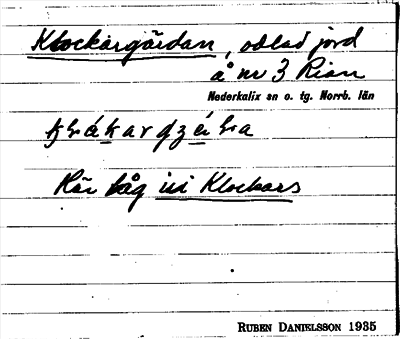 Klockargärdan, odlad jord
å nr 3 Rian
Nederkalix sn o. tg. Norrb. län
Här låg
Klockars
RUBEN DANIELSSON 1935